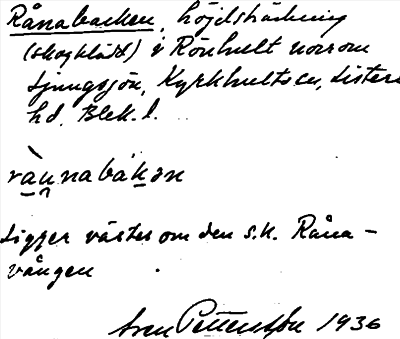 Rånabacken, höjdsträckning
(skogklädd) i Rönhult norr om
Ljungsjön, Kyrkhults sn, Listers
hd, Blek. l.
rånnabákən
Ligger väster om den s.k. Råna-
vången
Sven Pettersson 1936